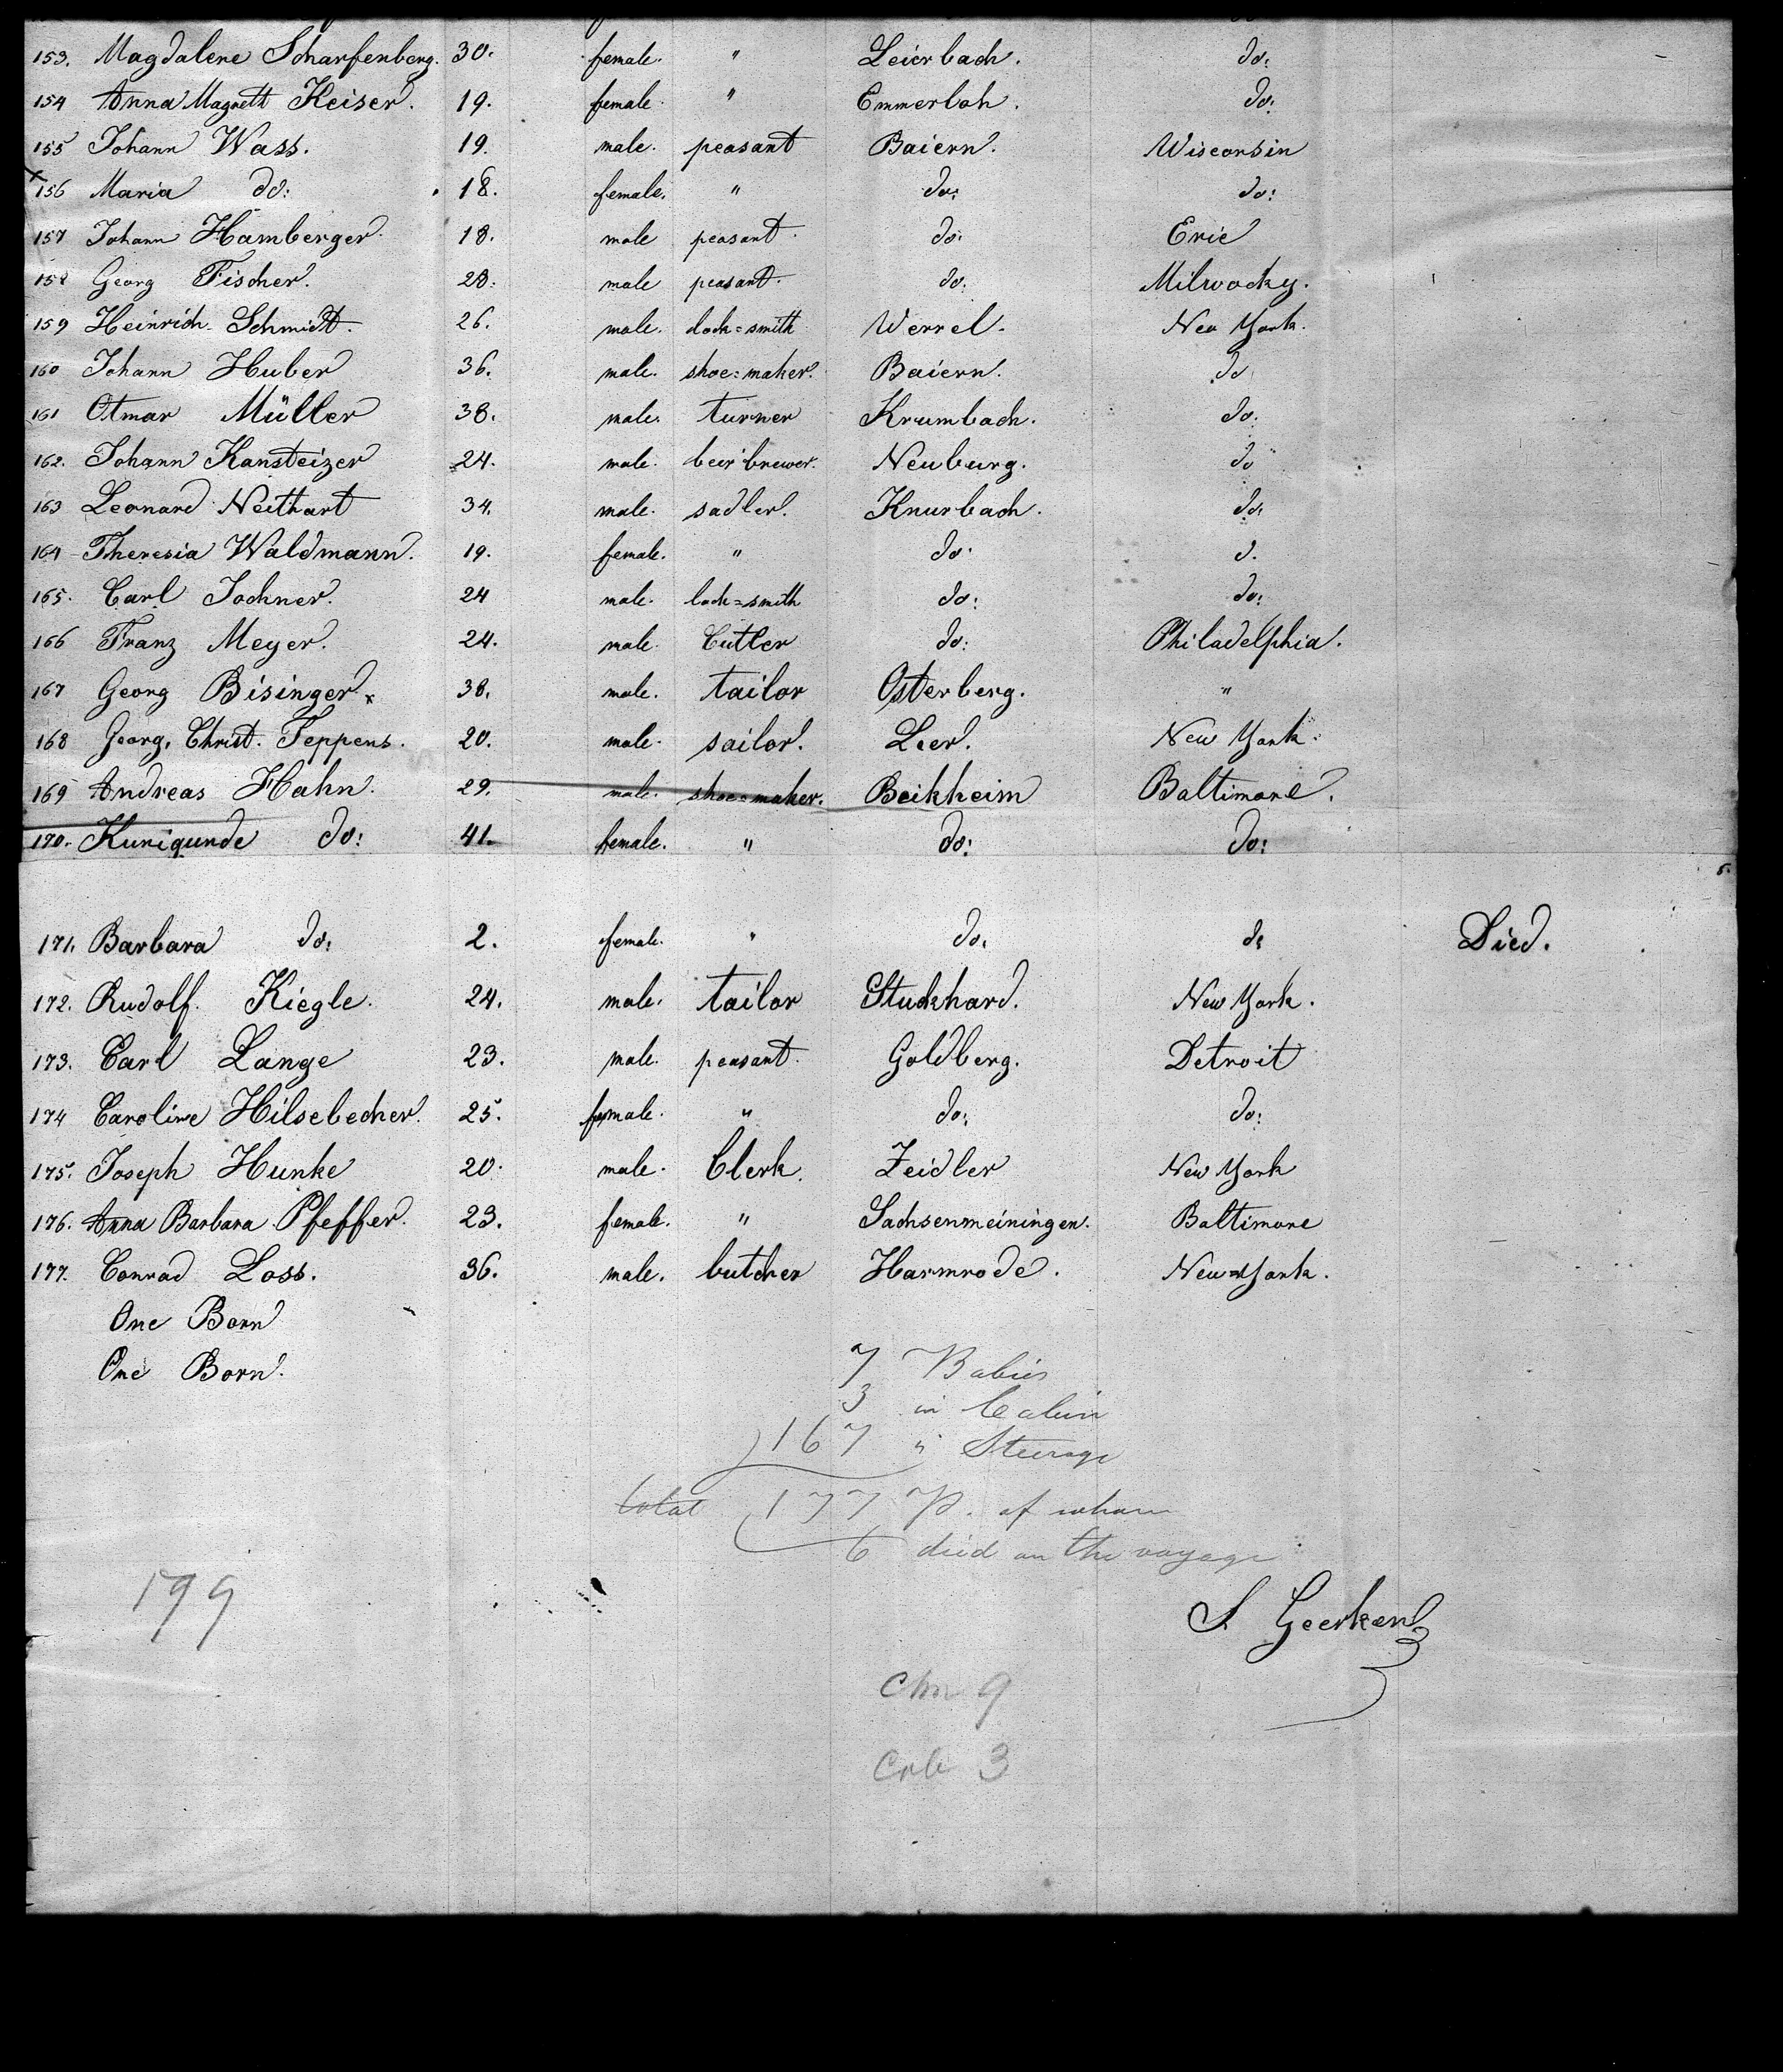 153. Magdalene Scharfenberg. 30. female. " Leierbach. do:
154 Anna Magrett Keiser. 19. female " Emmerloh. do:
155 Johann Wass. 19. male. peasant Baiern. Wisconsin
156 Maria do: 18. female. " do: do:
157 Johann Hamberger. 18. male peasant. do: Erie
158 Georg Fischer. 28. male peasant. do. Milwocky.
159 Heinrich Schmidt. 26. male. lock=smith Werrel. New York.
160 Johann Huber 36. male. shoe=maker. Baiern. do
161 Otmar Müller 38. male. turner Krumbach. do.
162. Johann Kansteizer 24. male. beer brewer. Neuburg. do
163 Leonard Neithart 34. male. sadler. Knurbach. do:
164 Theresia Waldmann. 19. female. " do: d.
165. Carl Jochner. 24 male. lock=smith do: do:
166 Franz Meyer. 24. male. Cutler do: Philadelphia.
167 Georg Bisinger. 38. male. tailor Osterberg. "
168 Georg. Christ. Feppens. 20. male. sailor. Leer. New York.
169 Andreas Hahn. 29. male. shoe=maker. Beikheim Baltimore.
170. Kunigunde do: 41. female. " do: do:
171. Barbara do: 2. female. " do. do Died.
172. Rudolf. Kiegle. 24. male. tailor Stuckhard. New York.
173. Carl Lange 23. male. peasant. Goldberg. Detroit
174 Caroline Hilsebecher. 25. female. " do: do:
175. Joseph Hunke 20. male. Clerk. Zeidler New York
176. Anna Barbara Pfeffer. 23. female. " Sachsenmeiningen. Baltimore
177. Conrad Loss. 36. male. butcher Harmrode. New=York.
One Born
One Born.
7 Babies
3 in Cabin
167 " Steerage
total 177 P. of whom
6 died on the voyage
199
S Geerken
Chn 9
Cab 3